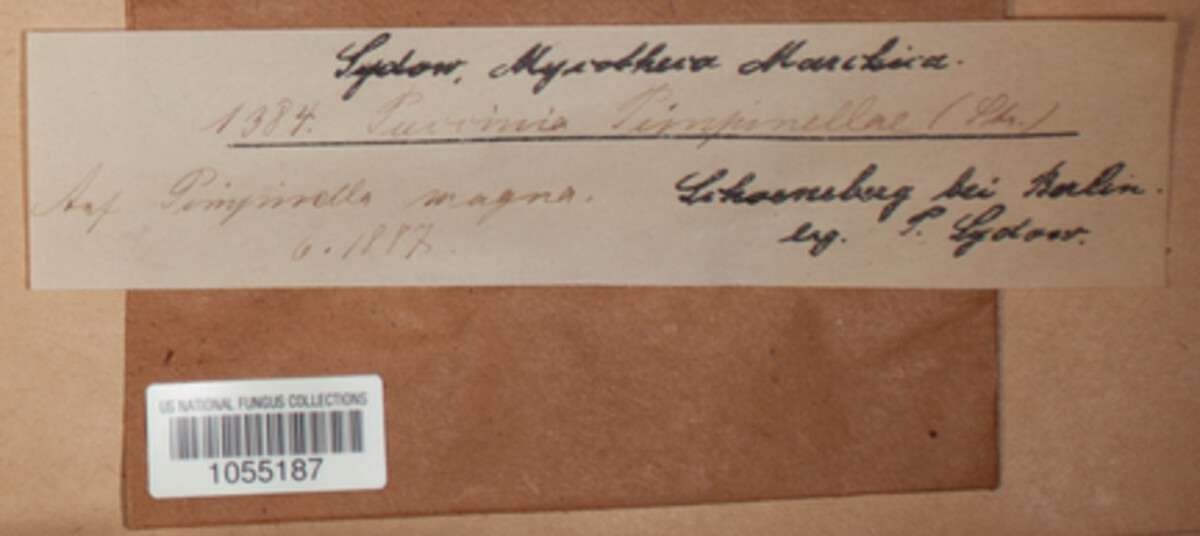 Sydow, Mycotheca Marchica.
1384. Puccinia Pimpinellae (Str.)
Auf Pimpinella magna.
6. 1887.
Schoeneberg bei Berlin.
leg. P. Sydow.
US NATIONAL FUNGUS COLLECTIONS
1055187